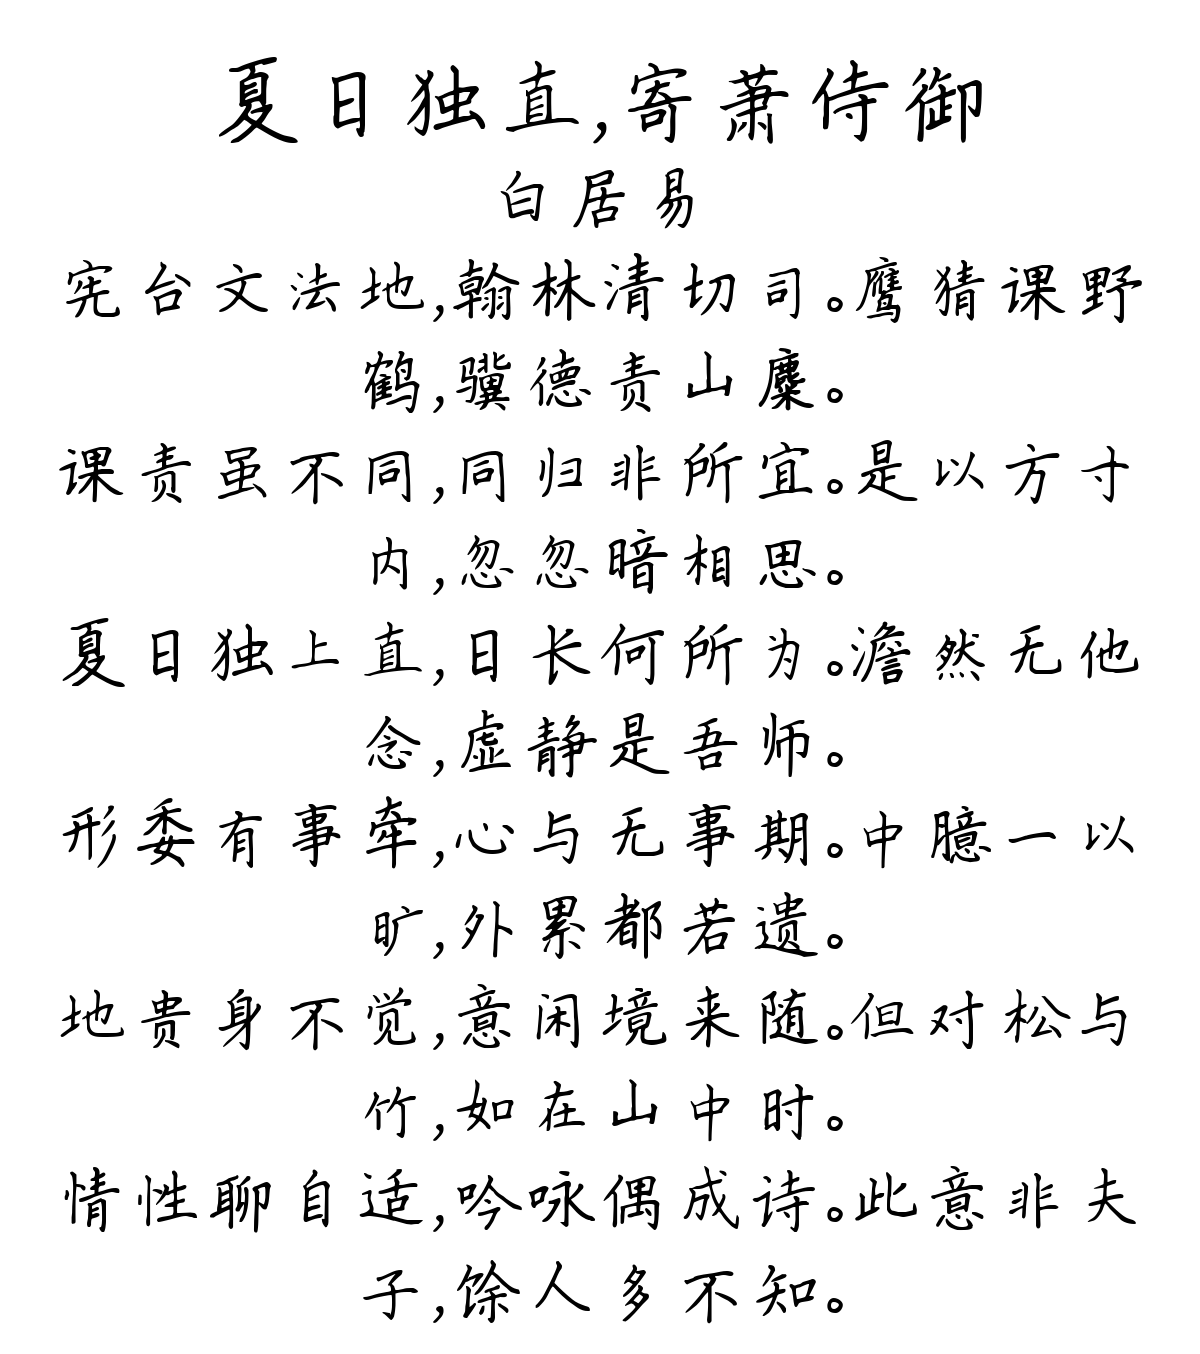 夏日独直,寄萧侍御
白居易
宪台文法地,翰林清切司。鹰猜课野
鹤,骥德责山麋。
课责虽不同,同归非所宜。是以方寸
内,忽忽暗相思。
夏日独上直,日长何所为。澹然无他
念,虚静是吾师。
形委有事牵,心与无事期。中臆一以
旷,外累都若遗。
地贵身不觉,意闲境来随。但对松与
竹,如在山中时。
情性聊自适,吟咏偶成诗。此意非夫
子,馀人多不知。